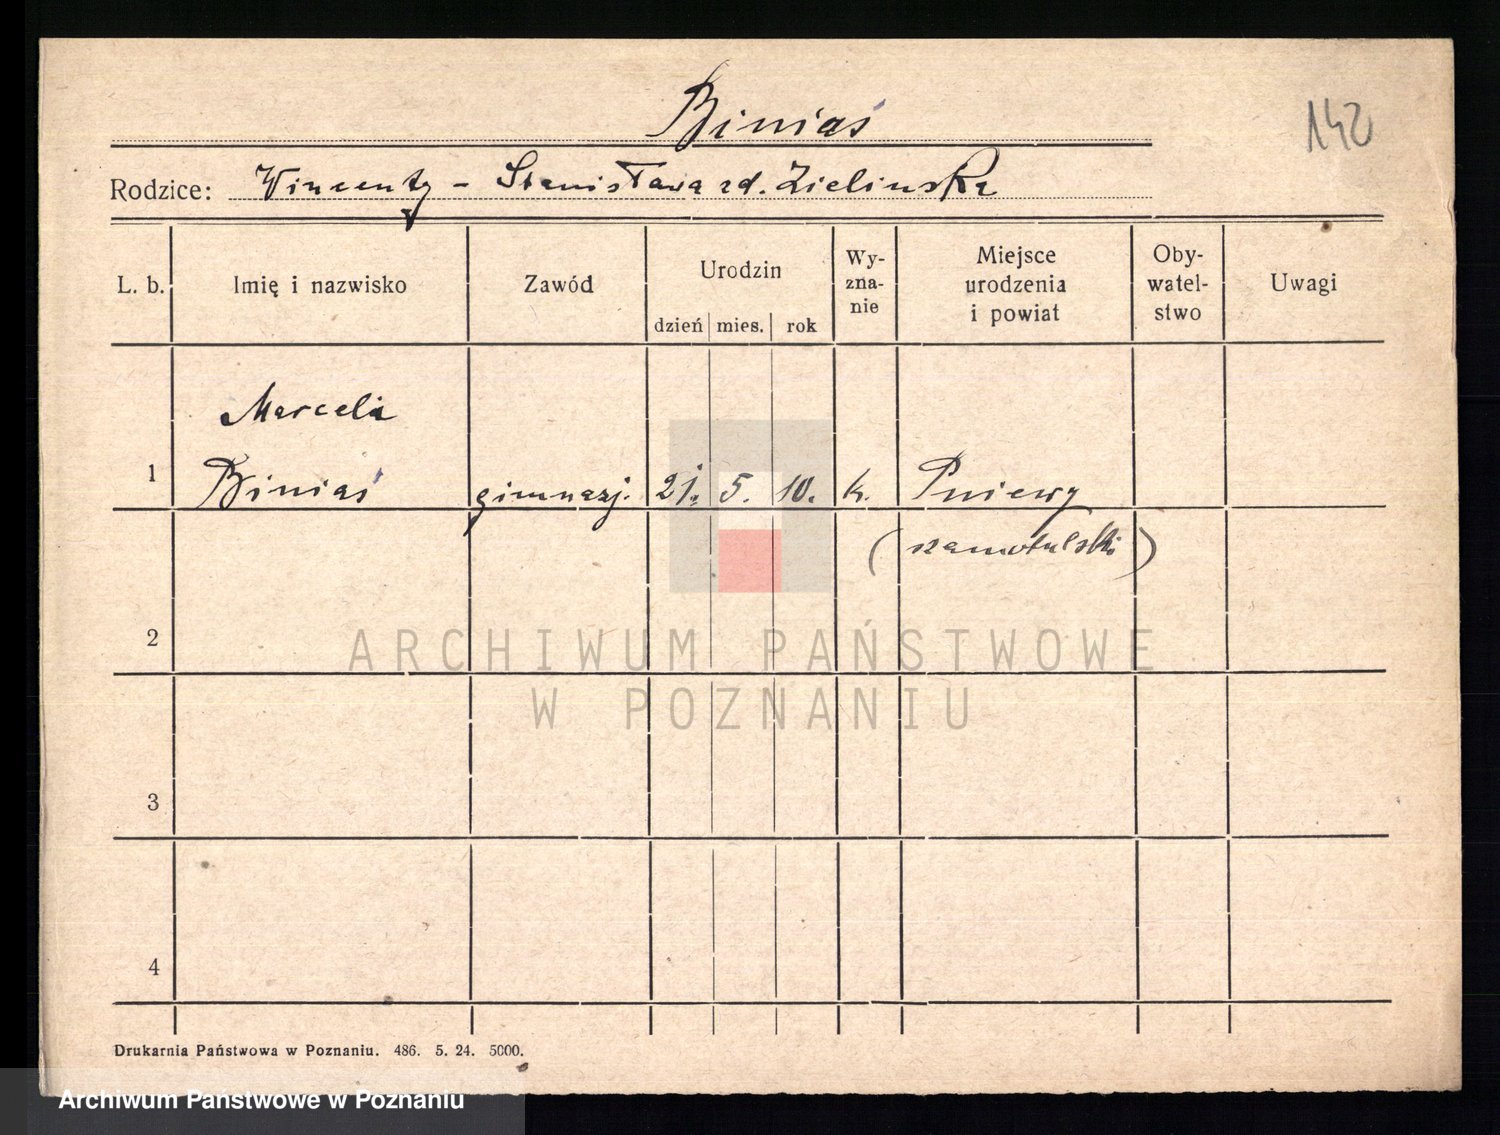 Biniaś
142
Rodzice: Wincenty - Stanisława zd. Zielinska
L. b. Imię i nazwisko Zawód Urodzin dzień mies. rok Wy-zna-nie Miejsce urodzenia i powiat Oby-watel-stwo Uwagi
Marceli
1 Biniaś gimnazj. 21. 5. 10. k. Pniewy
(szamotulski)
2
ARCHIWUM PAŃSTWOWE
W POZNANIU
3
4
Drukarnia Państwowa w Poznaniu. 486. 5. 24. 5000.
Archiwum Państwowe w Poznaniu